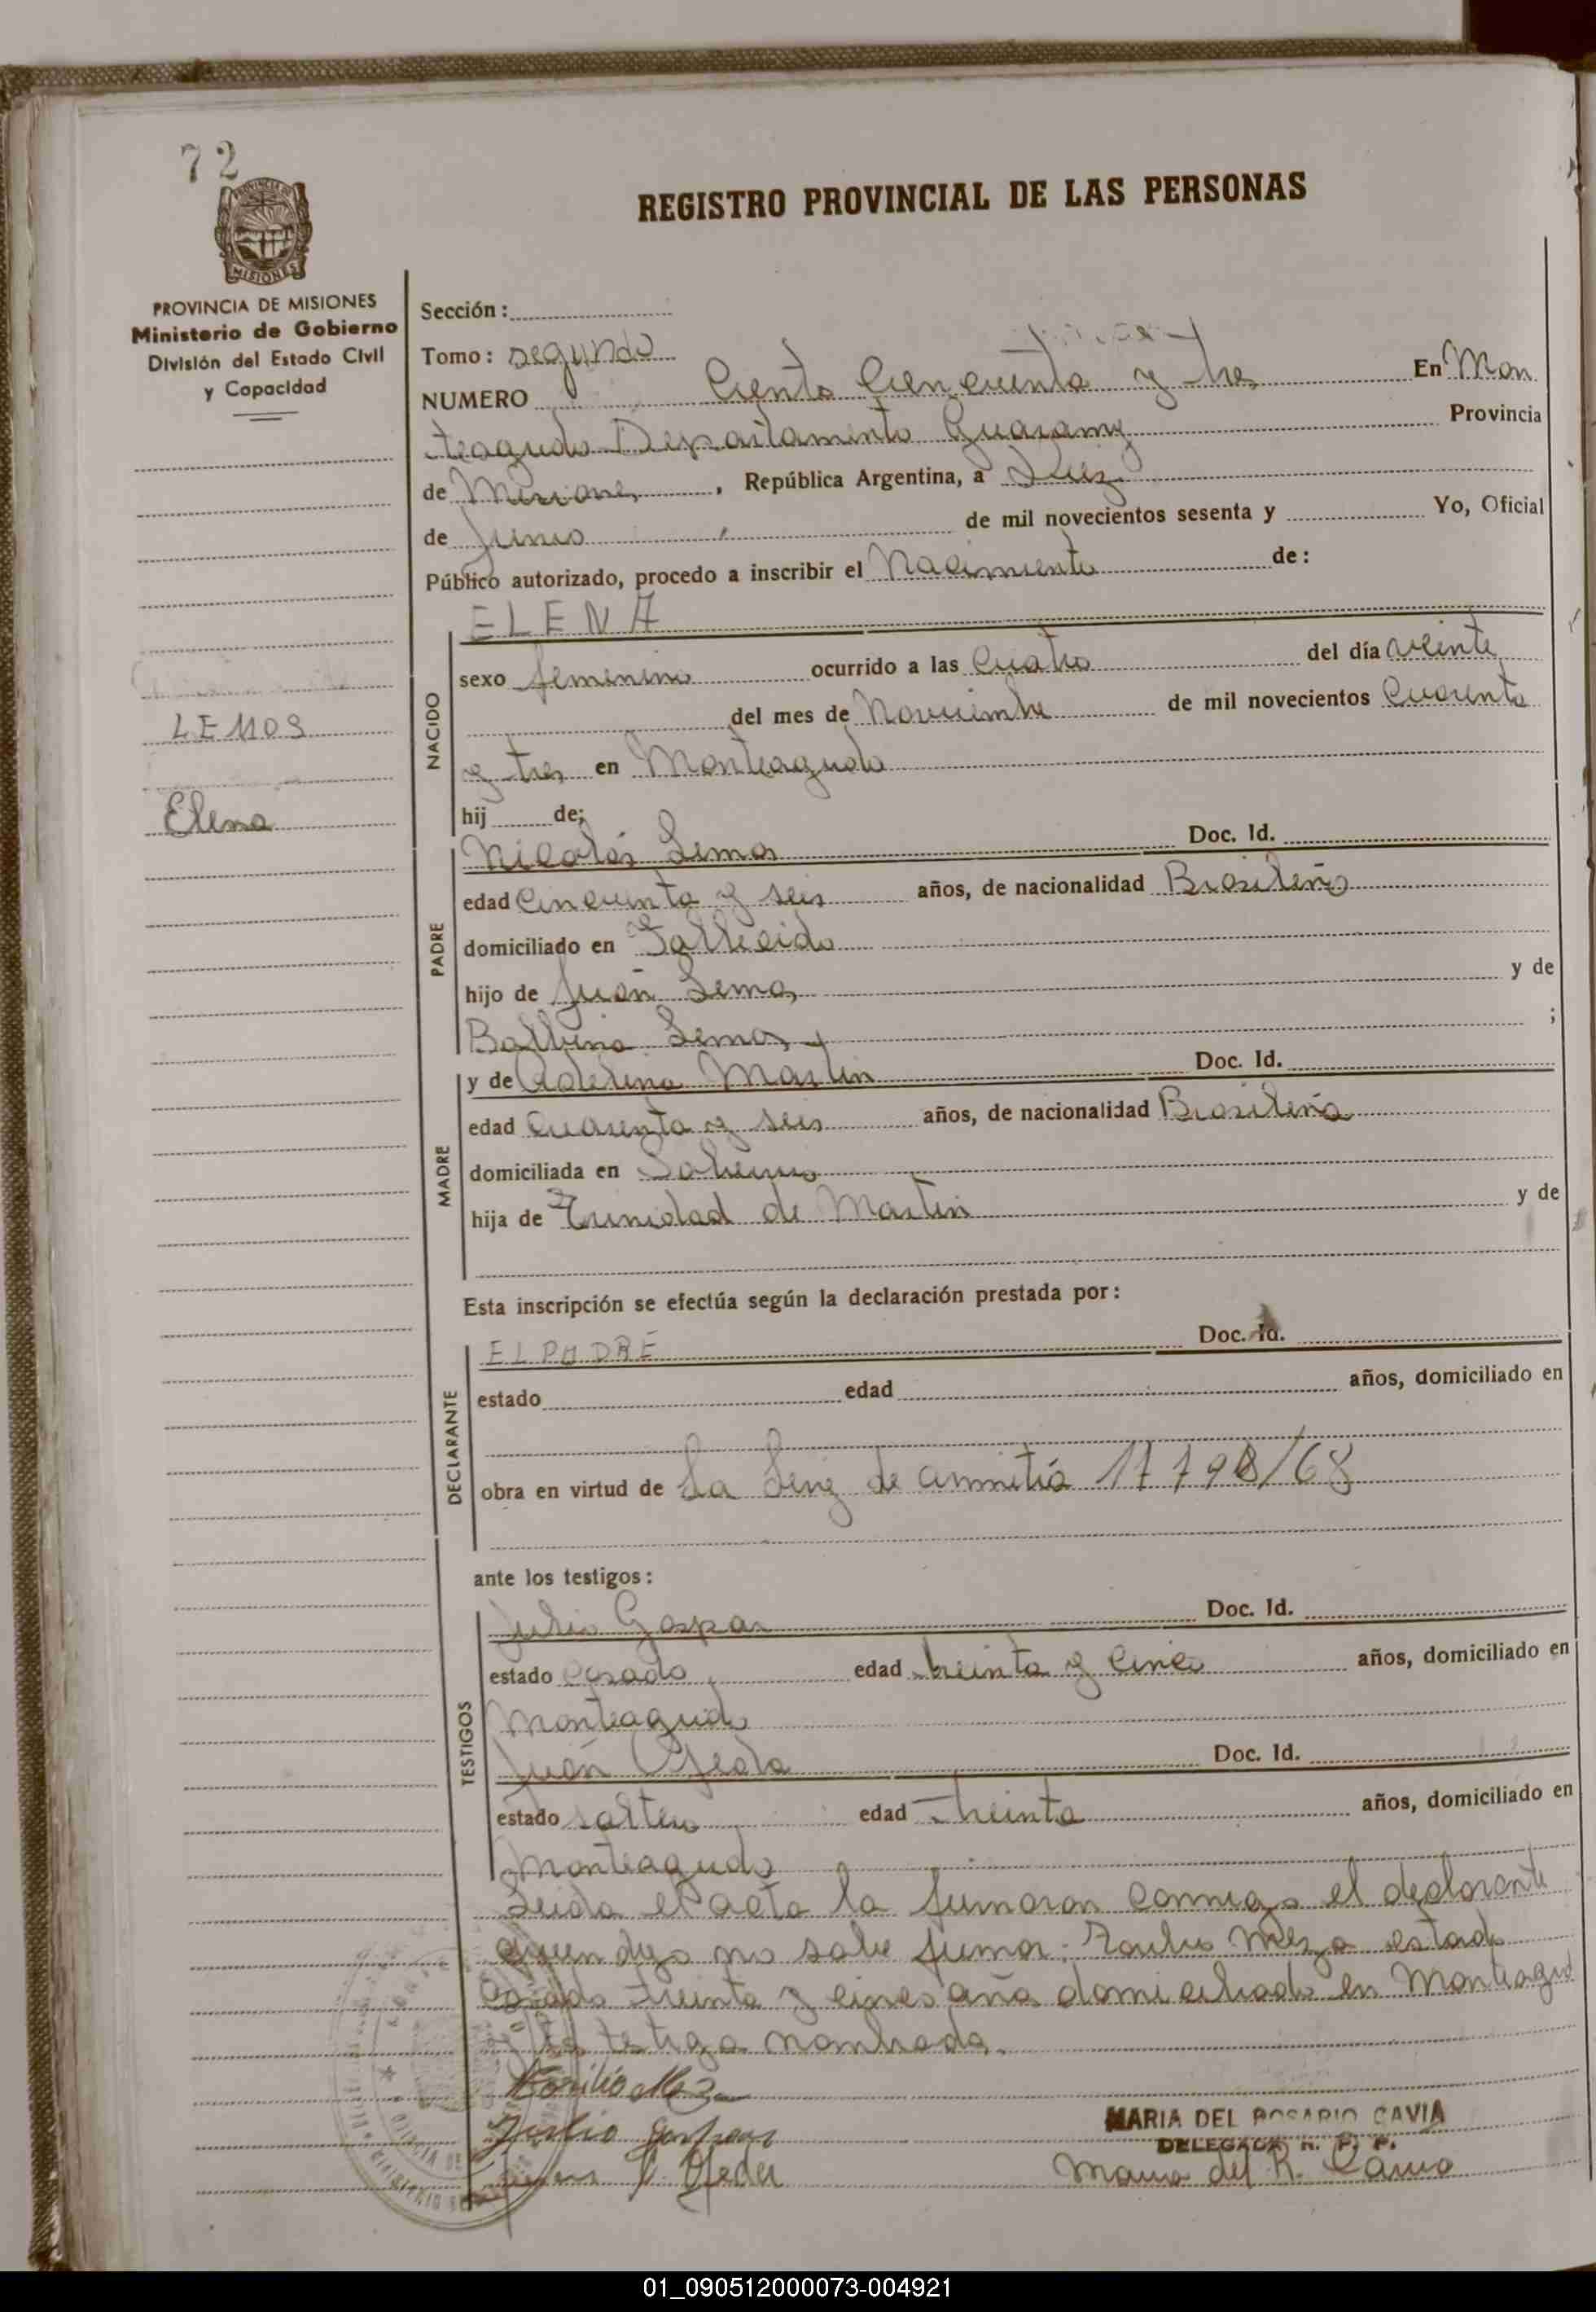 72
REGISTRO PROVINCIAL DE LAS PERSONAS
MISIONES
PROVINCIA DE MISIONES
Ministerio de Gobierno
División del Estado Civil
y Capacidad
Sección:
Tomo: segundo
NUMERO Ciento Cincuenta y tres En Mon
teagudo Departamento Guarany Provincia
de Misiones, República Argentina, a Diez
de Junio de mil novecientos sesenta y Yo, Oficial
Público autorizado, procedo a inscribir el Nacimiento de:
LEMOS
Elena
NACIDO
ELENA
sexo femenino ocurrido a las Cuatro del día veinte
del mes de Noviembre de mil novecientos Cuarenta
y tres en Monteagudo
hij de;
PADRE
Nicolás Lemos Doc. Id.
edad Cincuenta y seis años, de nacionalidad Brasileño
domiciliado en Fallecido
hijo de Juan Lemos y de
Balbina Lemos ;
MADRE
y de Adelina Martin Doc. Id.
edad Cuarenta y seis años, de nacionalidad Brasileña
domiciliada en
hija de Trinidad de Martin y de
Esta inscripción se efectúa según la declaración prestada por:
DECLARANTE
EL PADRE Doc. Id.
estado edad años, domiciliado en
obra en virtud de La Ley de amnitia 17798/68
ante los testigos:
TESTIGOS
Julio Gaspar Doc. Id.
estado Casado edad treinta y cinco años, domiciliado en
Monteagudo
Juan Ojeda Doc. Id.
estado soltero edad treinta años, domiciliado en
Monteagudo
Leida el acta la firmaron conmigo el declarante
quien dijo no sabe firmar. Meza estado
Casado treinta y cinco años domiciliado en Monteagud
testigo nombrado.
Julio Gaspar
Ojeda
MARIA DEL ROSARIO CAVIA
DELEGADA R. P. P.
Maria del R. Cavia
01_090512000073-004921